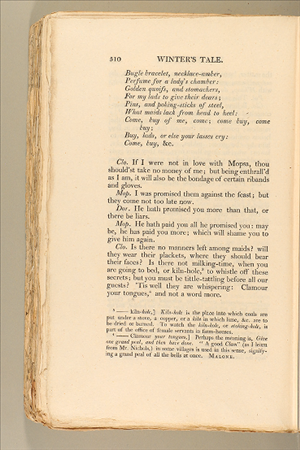 310 WINTER'S TALE.
Bugle bracelet, necklace-amber,
Perfume for a lady's chamber:
Golden quoifs, and stomachers,
For my lads to give their dears;
Pins, and poking-sticks of steel,
What maids lack from head to heel:
Come, buy of me, come: come buy, come
buy:
Buy, lads, or else your lasses cry:
Come, buy, &c.
Clo. If I were not in love with Mopsa, thou
should'st take no money of me; but being enthrall'd
as I am, it will also be the bondage of certain ribands
and gloves.
Mop. I was promised them against the feast; but
they come not too late now.
Dor. He hath promised you more than that, or
there be liars.
Mop. He hath paid you all he promised you: may
be, he has paid you more; which will shame you to
give him again.
Clo. Is there no manners left among maids? will
they wear their plackets, where they should bear
their faces? Is there not milking-time, when you
are going to bed, or kiln-hole,⁸ to whistle off these
secrets; but you must be tittle-tattling before all our
guests? 'Tis well they are whispering: Clamour
your tongues,⁹ and not a word more.
⁸ —— kiln-hole,] Kiln-hole is the place into which coals are
put under a stove, a copper, or a kiln in which lime, &c. are to
be dried or burned. To watch the kiln-hole, or stoking-hole, is
part of the office of female servants in farm-houses.
⁹ —— Clamour your tongues,] Perhaps the meaning is, Give
one grand peal, and then have done. "A good Clam" (as I learn
from Mr. Nichols,) in some villages is used in this sense, signify-
ing a grand peal of all the bells at once. MALONE.